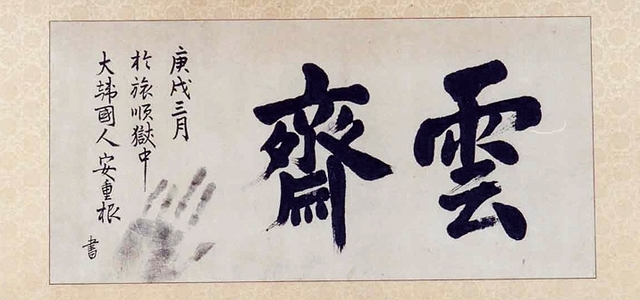 雲齋
庚戌三月
於旅順獄中
大韓國人 安重根
書